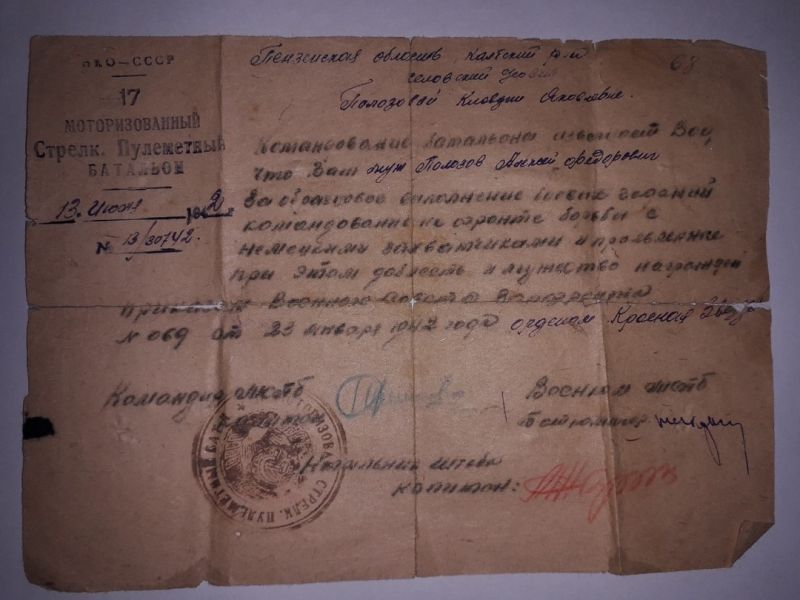 НКО–СССР
17
МОТОРИЗОВАННЫЙ
Стрелк. Пулеметный
БАТАЛЬОН
13. июня 1942
№ 13/30742.
68
Пензенская область р-н
Полозовой Клавдии Яковлевне.
Командование батальона извещает Вас
что Ваш муж Полозов Федорович
За образцовое выполнение боевых заданий
командование на фронте борьбы с
немецкими захватчиками и проявленные
при этом доблесть и мужество награжден
приказом Военного Совета Запфронта
№ 069 от 23 января 1942 года орденом Красная Звезда
Командир мспб
Военком мспб
Начальник штаба
капитан:
СТРЕЛК. ПУЛЕМЕТНЫЙ БАТ